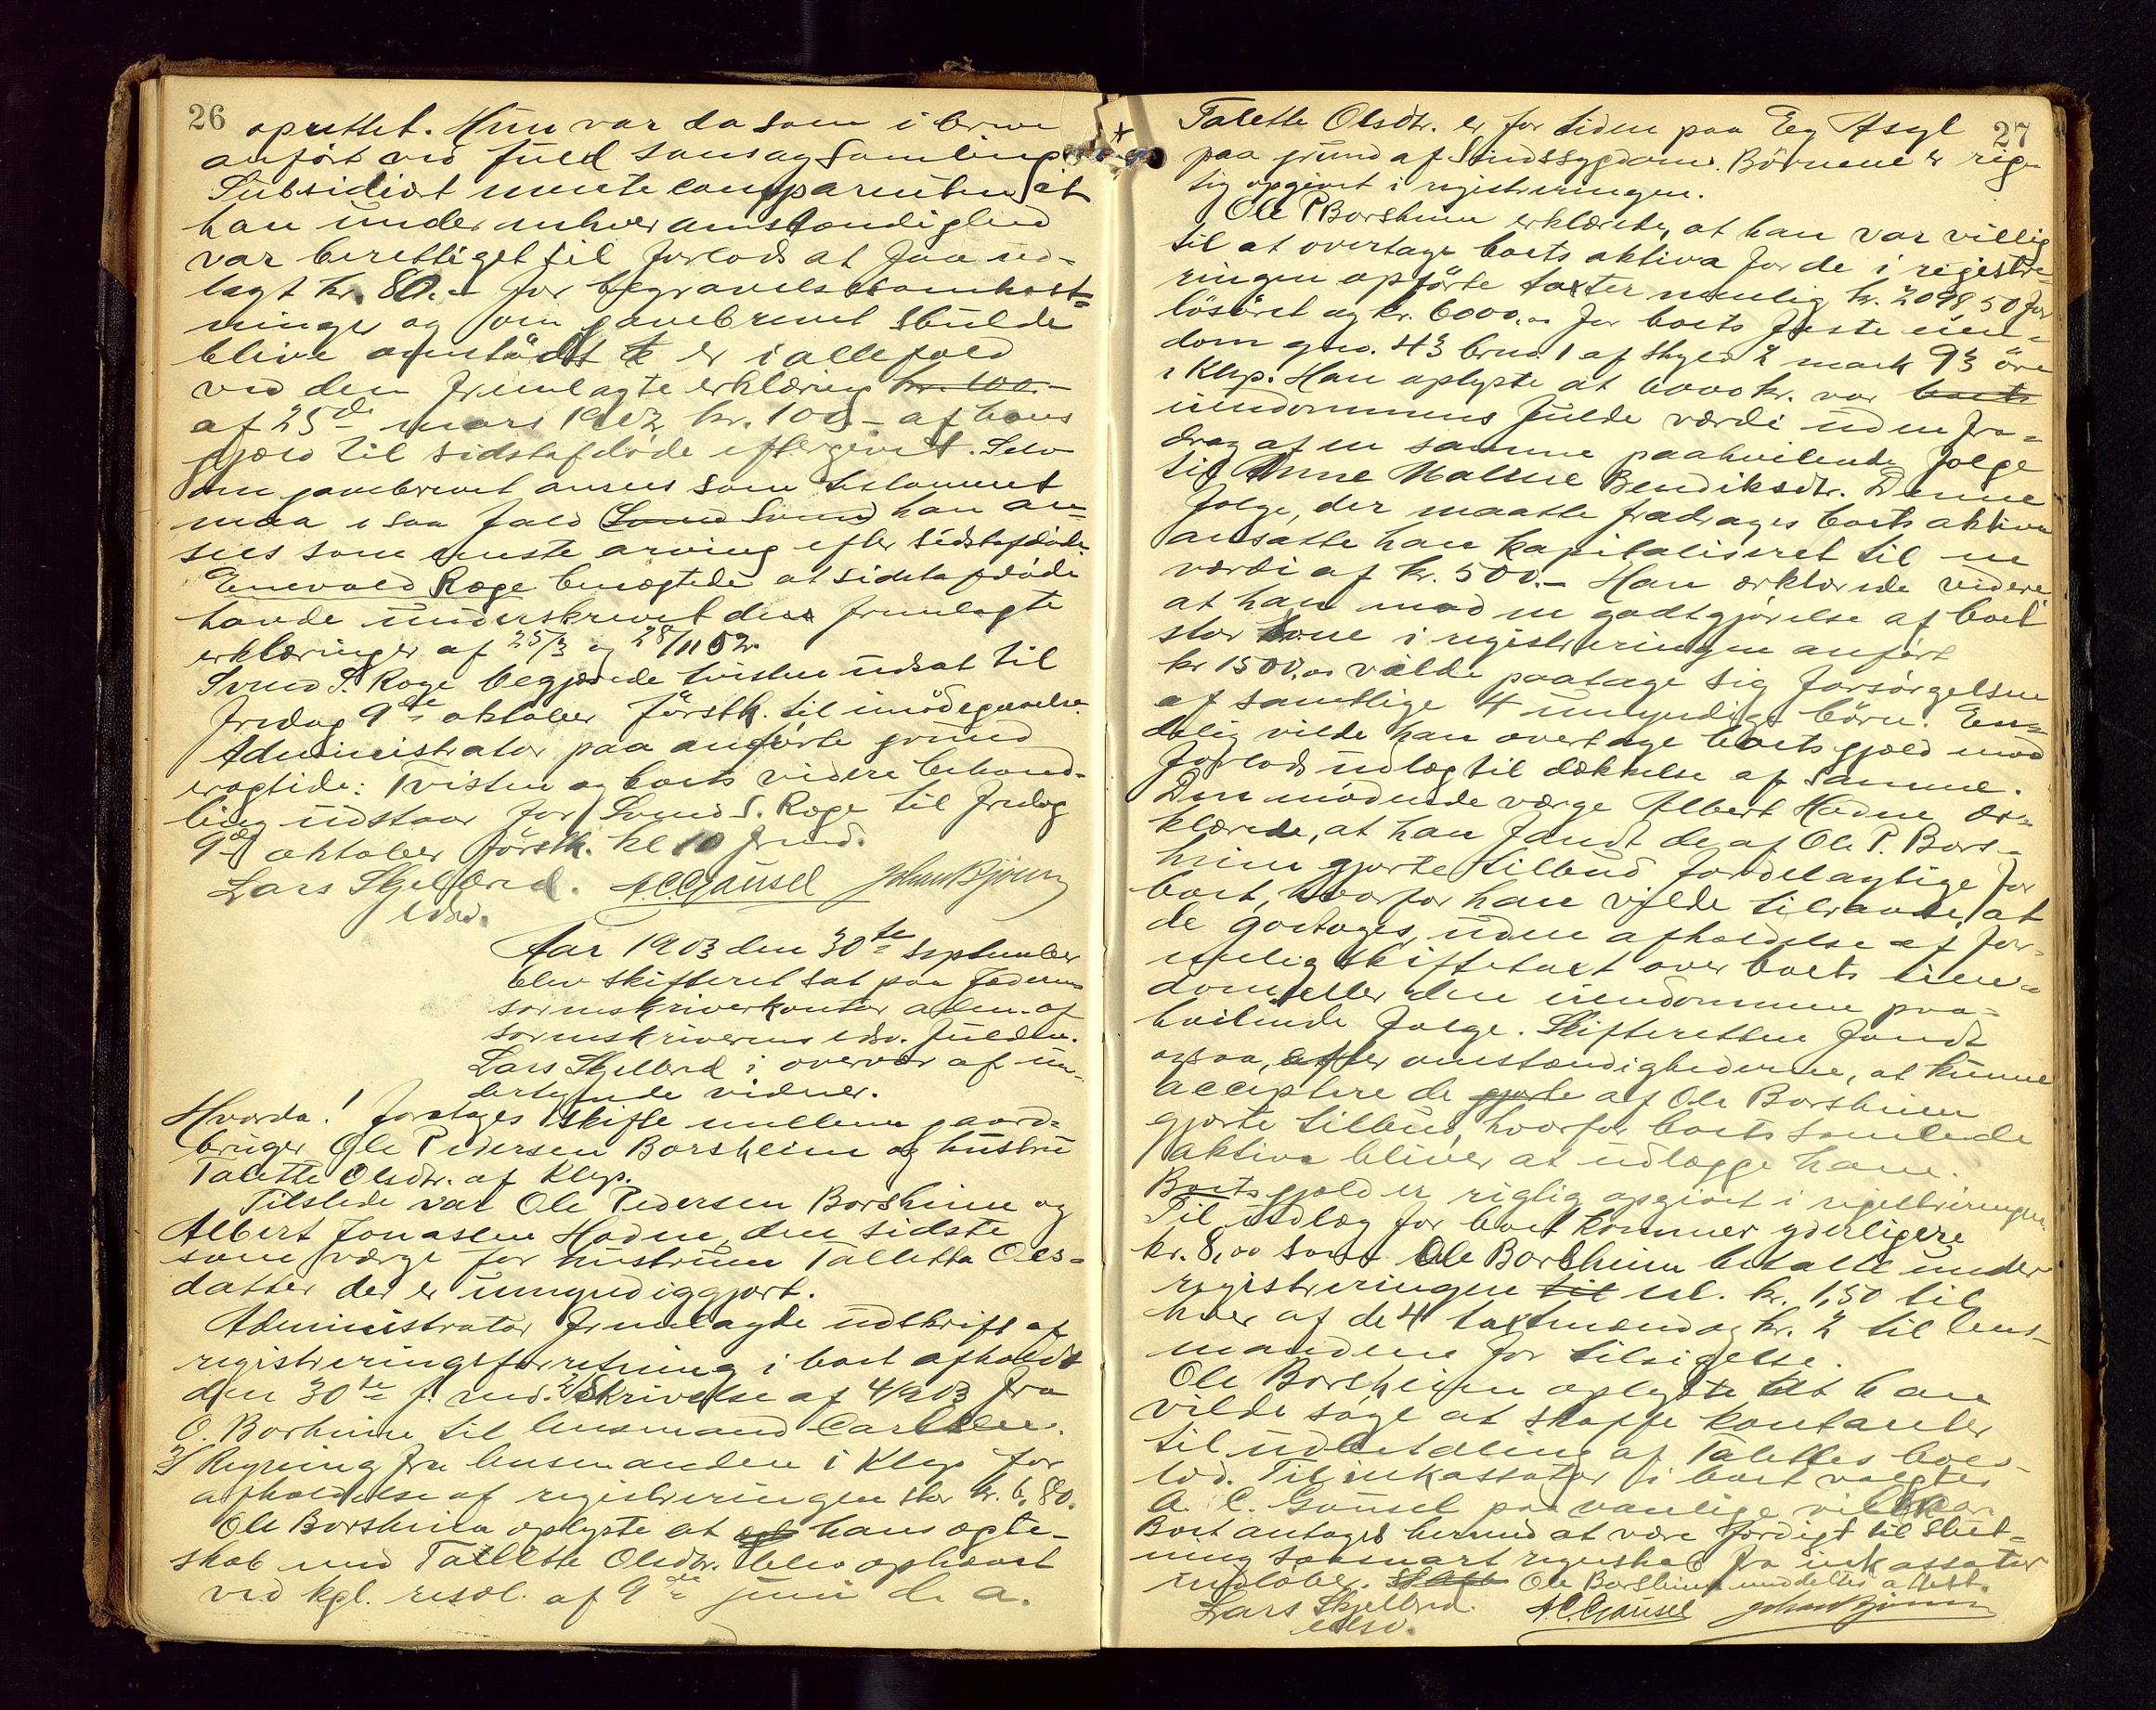 26
oprettet. Hun var da som i breve
anført ved fuld sans og samling.
Subsidiært mente comparenten at
han under enhver omstændighed
var berettiget til forlods at faa ud-
lagt kr. 80.- for begravelsesomkost-
ninger og om gavebrevet skulde
blive omstødt er i allefald
ved den fremlagte erklæring kr. 100.-
af 25de mars 1902 kr. 100.- af hans
gjæld til sidstafdøde eftergivet. Selv
om gavebrevet ansees som testament
maa i saa fald Svend han an-
sees som eneste arving efter sidstafdøde.
Enevald Rage benægtede at sidstafdøde
havde underskrevet de fremlagte
erklæringer af 25/3 og 28/11 02.
Svend S. Rage begjærede tvisten udsat til
fredag 9de oktober førstk. til imødegaaelse.
Administrator paa anførte grund
eragtede: Tvisten og boets videre behand-
ling udstaar for Svend S. Rage til fredag
9de oktober førstk. kl 10 fmd.
Lars Skjelbred. A.C. Gausel Johan Bjønn
edsv.
Aar 1903 den 30te september
blev skifteret sat paa Jæderens
sorenskriverkontor adm. af
sorenskriverens edsv. fuldm.
Lars Skjelbred i overvær af un-
dertegnede vidner.
Hvorda! foretages skifte mellem gaard-
bruger Ole Pedersen Borsheim og hustru
Talette Olsdtr. af Klep.
Tilstede var Ole Pedersen Borsheim og
Albert Jonassen Hodne, den sidste
som værge for hustruen Talletta Ols-
datter der er umyndiggjort.
Administrator fremlagde udskrift af
registreringsforretning i boet afholdt
den 30te f. md. 2/ Skrivelse af 4/9 03 fra
O. Borsheim til lensmand Carlsen.
3/ Regning fra lensmanden i Klep for
afholdelse af registreringen stor kr. 6,80.
Ole Borsheim oplyste at hans ægte-
skab med Talette Olsdtr. blev ophævet
ved kgl. resol. af 9de juni d. a.
27
Talette Olsdtr. er for tiden paa Eg Asyl
paa grund af Sindssygdom. Børnene er rig-
tig opgivet i registreringen.
Ole P Borsheim erklærede, at han var villig
til at overtage boets aktiva for de i registre-
ringen opførte taxter nemlig kr. 2098,50 for
løsøret og kr. 6000,00 for boets faste eien-
dom gno. 43 brno. 1 af skyld 2 mark 93 øre
i Klep. Han oplyste at 6000 kr. var boets
eiendommens fulde værdi uden fra-
drag af en samme paahvilende følge
til Anne Malene Bendiksdtr. Denne
følge, der maatte fradrages boets aktiva
ansatte han kapitaliseret til en
værdi af kr. 500.- Han erklærede videre
at han mod en godtgjørelse af boet
stor som i registreringen anført
kr 1500,00 vilde paatage sig forsørgelsen
af samtlige 4 umyndige børn. En-
delig vilde han overtage boets gjæld mod
forlods udlæg til dækkelse af samme.
Den mødende værge Albert Hodne er-
klærede, at han fandt de af Ole P. Bors-
heim gjorte tilbud fordelagtige for
boet, hvorfor han vilde tilraade, at
de godtoges uden afholdelse af for-
melig skiftetaxt over boets eien-
dom eller den eiendommen paa-
hvilende følge. Skifteretten fandt
ogsaa, efter omstændighederne, at kunne
acceptere de gjorte af Ole Borsheim
gjorte tilbud, hvorfor boets samlede
aktiva bliver at udlægge ham.
Boets gjæld er rigtig opgivet i registreringen
Til udlæg for boet kommer yderligere
kr. 8,00 som Ole Borsheim betalte under
registreringen til kr. 1,50 til
hver af de 4 taxtmænd og kr. 2 til lens-
mandene for tilsigelse.
Ole Borsheim oplyste at han
vilde søge at skaffe kontanter
til udbetaling af Talettes boes-
lod. Til inkassator i boet valgtes
A. C. Gausel paa vanlige vilkaar.
Boet antages hermed at være færdigt til slut-
ning saasnart regnskab fra inkassator
indløber. Ole Borsheim meddeltes attest.
Lars Skjelbred A.C. Gausel Johan Bjønn
edsv.